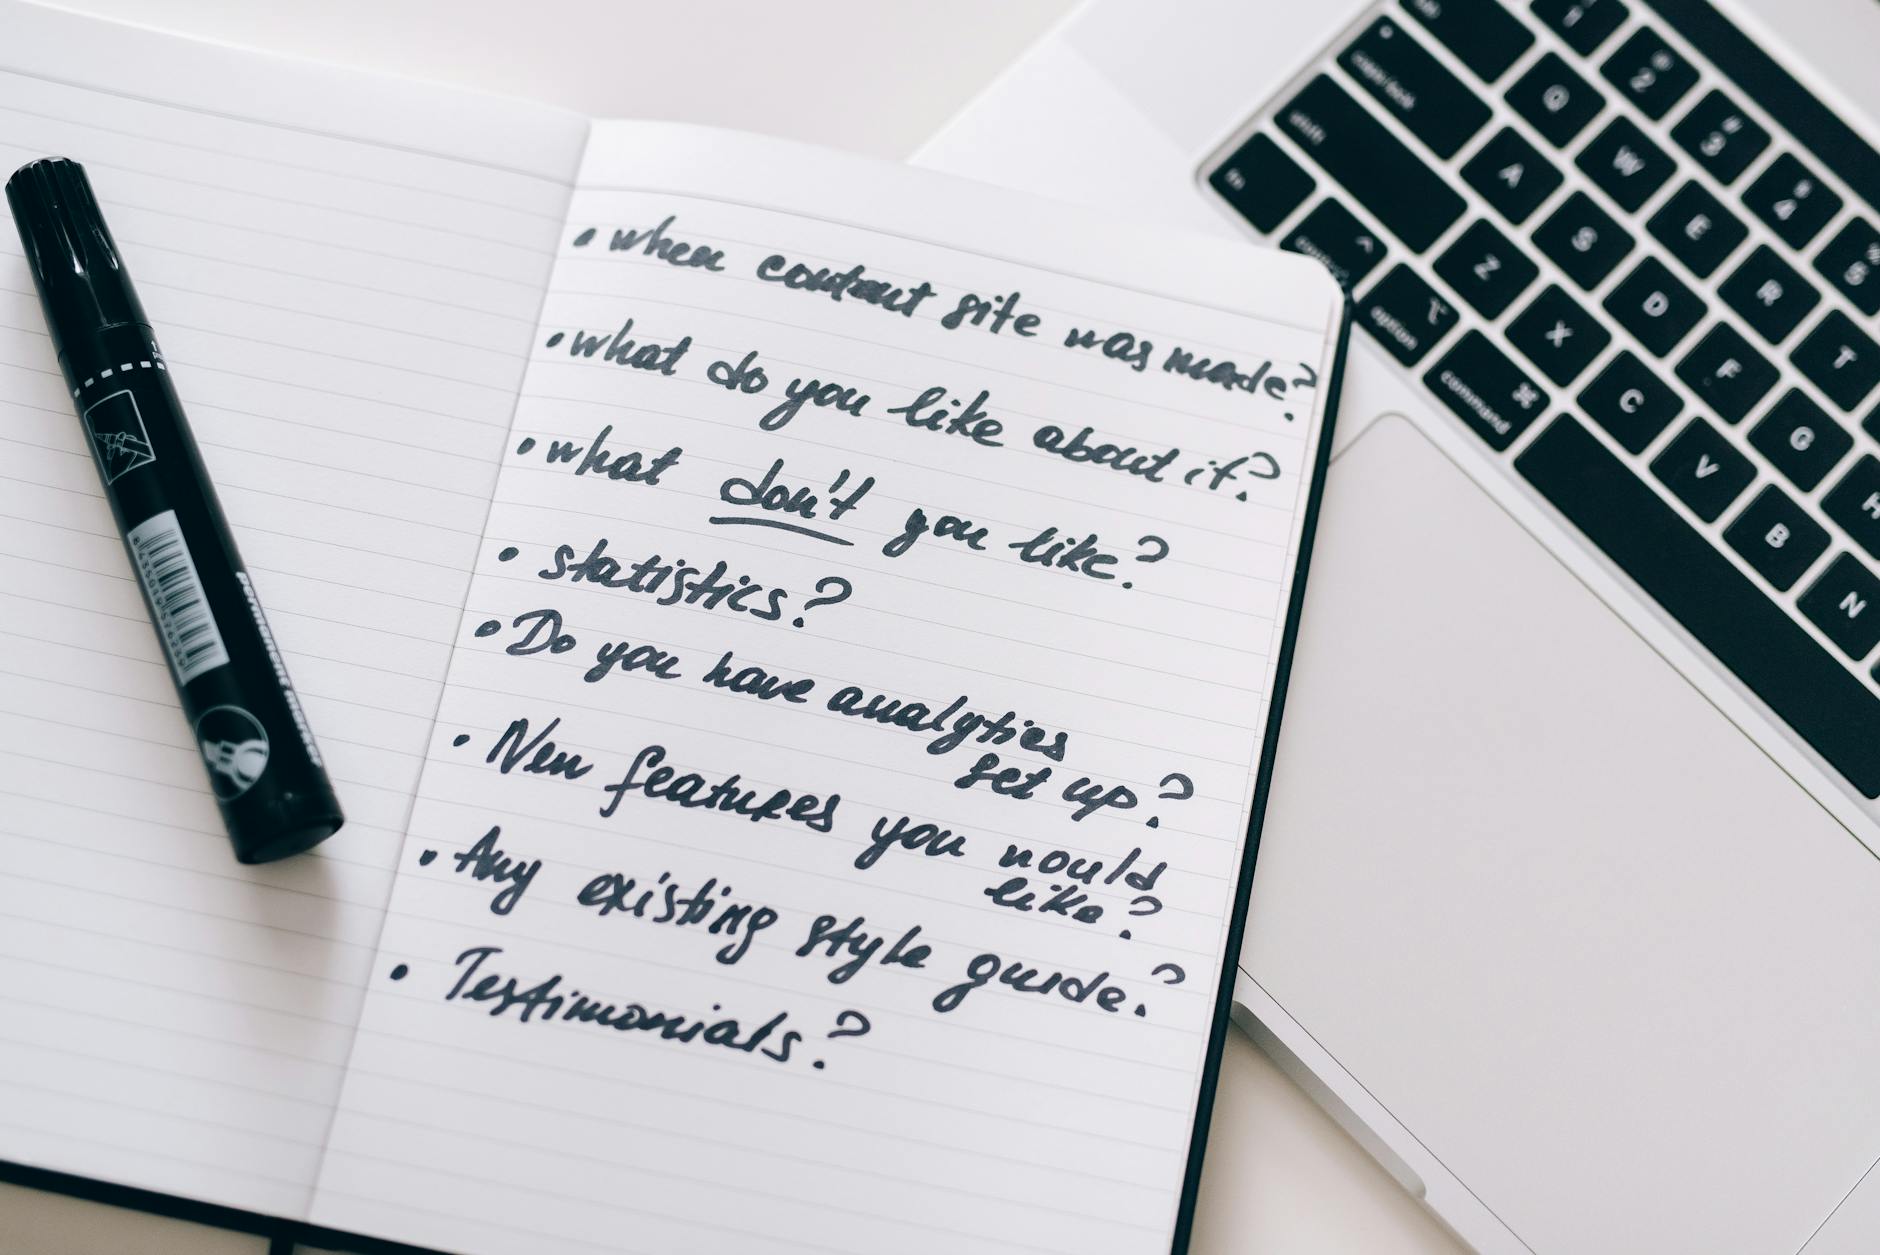 • when content site was made?
• what do you like about it?
• what don't you like?
• statistics?
• Do you have analytics
set up?
• New features you would
like?
• Any existing style guide?
• Testimonials?
Permanent marker
fn
shift
caps lock
control
option
command
1
2
3
4
5
Q
W
E
R
T
A
S
D
F
G
H
Z
X
C
V
B
N